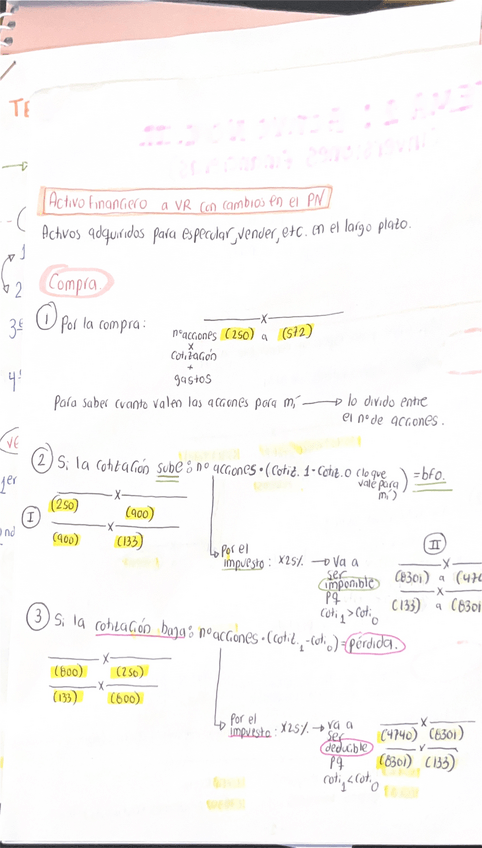 Activo Financiero a VR con cambios en el PN
Activos adquiridos para especular, vender, etc. en el largo plazo.
Compra.
① Por la compra:
x
nº acciones (250) a (572)
x
cotización
+
gastos
Para saber cuanto valen las acciones para mí → lo divido entre
el nº de acciones.
② Si la cotización sube: nº acciones · (cotiz. 1 - cotiz. 0 (lo que
vale para
mí)) = bfo.
I
x
(250) (900)
x
(900) (133)
Por el
impuesto: x25% → va a
ser
imponible
pq
coti1 > coti0
II
x
(8301) a (47
x
(133) a (8301
③ Si la cotización baja: nº acciones · (cotiz.1 - coti0) = pérdida.
x
(800) (250)
x
(133) (800)
Por el
impuesto: x25% → va a
ser
deducible
pq
coti1 < coti0
x
(4740) (8301)
(8301) (133)